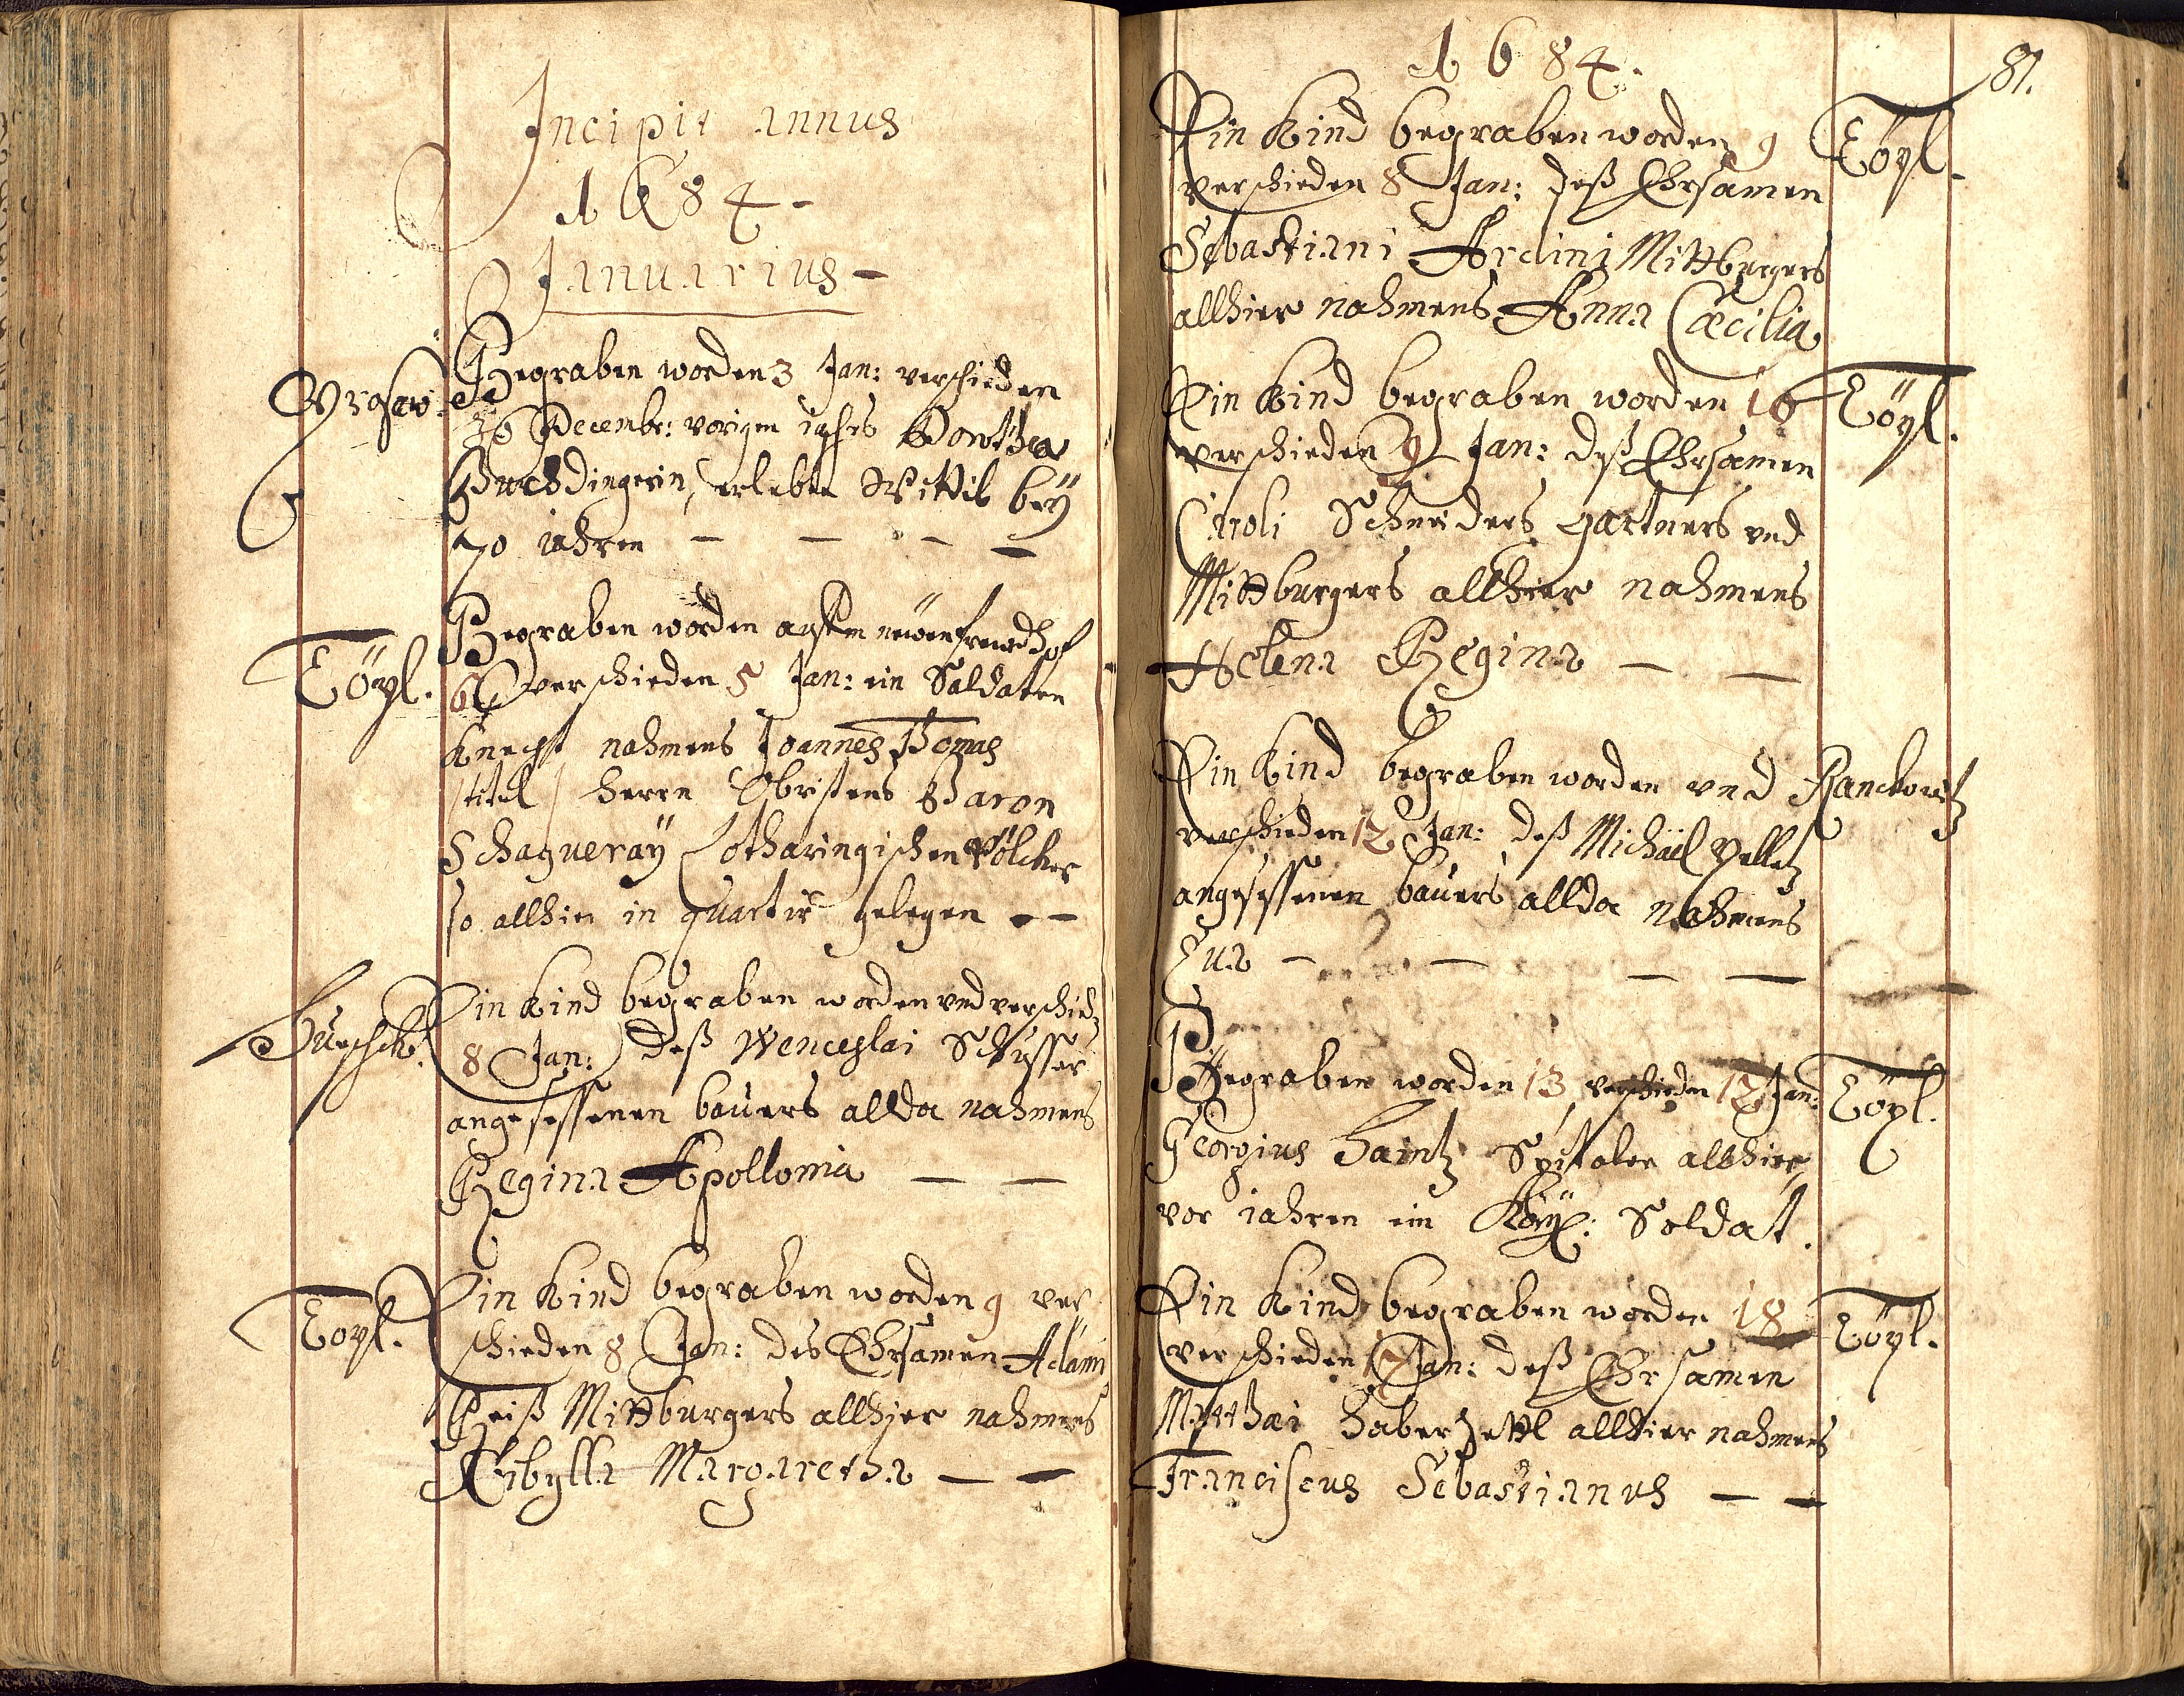 Incipit annus
1684.
Januarius
Begraben worden 3 Jan: verschieden
Decembr: vorigen jahrs Dorothea
erlebte Wittib bey
70 jahren
Töpl.
Begraben worden auffm newen freudhof
6 verschieden 5 Jan: ein Saldaten
Knecht nahmens Joannes Thomas
/titel/ herrn Obristens Baron
Schagueray Lotharingischen Völcker
so allhier in quartir gelegen
Ein Kind begraben worden und verschied
8 Jan: deß Wenceslai
angesessenen bauers allda nahmens
Regina Apollonia
Töpl.
Ein Kind begraben worden 9 ver
schieden 8 Jan: des Ehrsamen Adami
Reiß Mittburgers allhier nahmens
Sibylla Margaretha
1684.
81.
Ein Kind begraben worden 9
Töpl.
verschieden 8 Jan: deß Ehrsamen
Sebastiani Mittburgers
allhier nahmens Anna Cæcilia
Ein Kind begraben worden 10
Töpl.
verschieden 9 Jan: deß Ehrsamen
Caroli Schneiders gartners und
Mittburgers allhier nahmens
Helena Regina
Ein Kind begraben worden und
Ranckowitz
verschieden 12 Jan: deß Michäel
angesessenen bauers allda nahmens
Eva
Begraben worden 13 verschieden 12 Jan:
Töpl.
Georgius Haintz Spitaler allhier,
vor jahren ein Kay: Soldat.
Ein Kind begraben worden 18
Töpl.
verschieden 17 Jan: deß Ehrsamen
Matthæi Haberzettl allhier nahmens
Franciscus Sebastianus